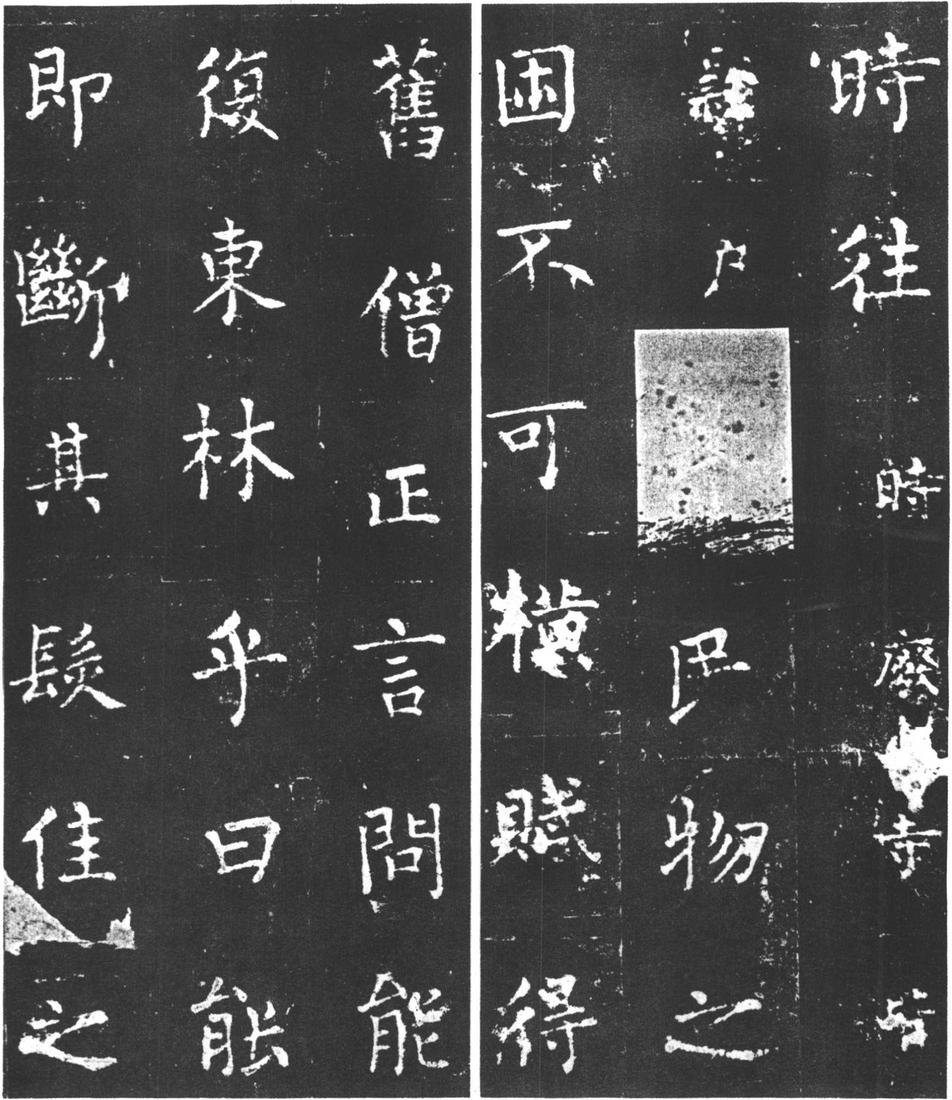 時往時廢寺
物之
困不可橫賦得
舊僧正言問能
復東林乎曰能
即斷其髮佳之